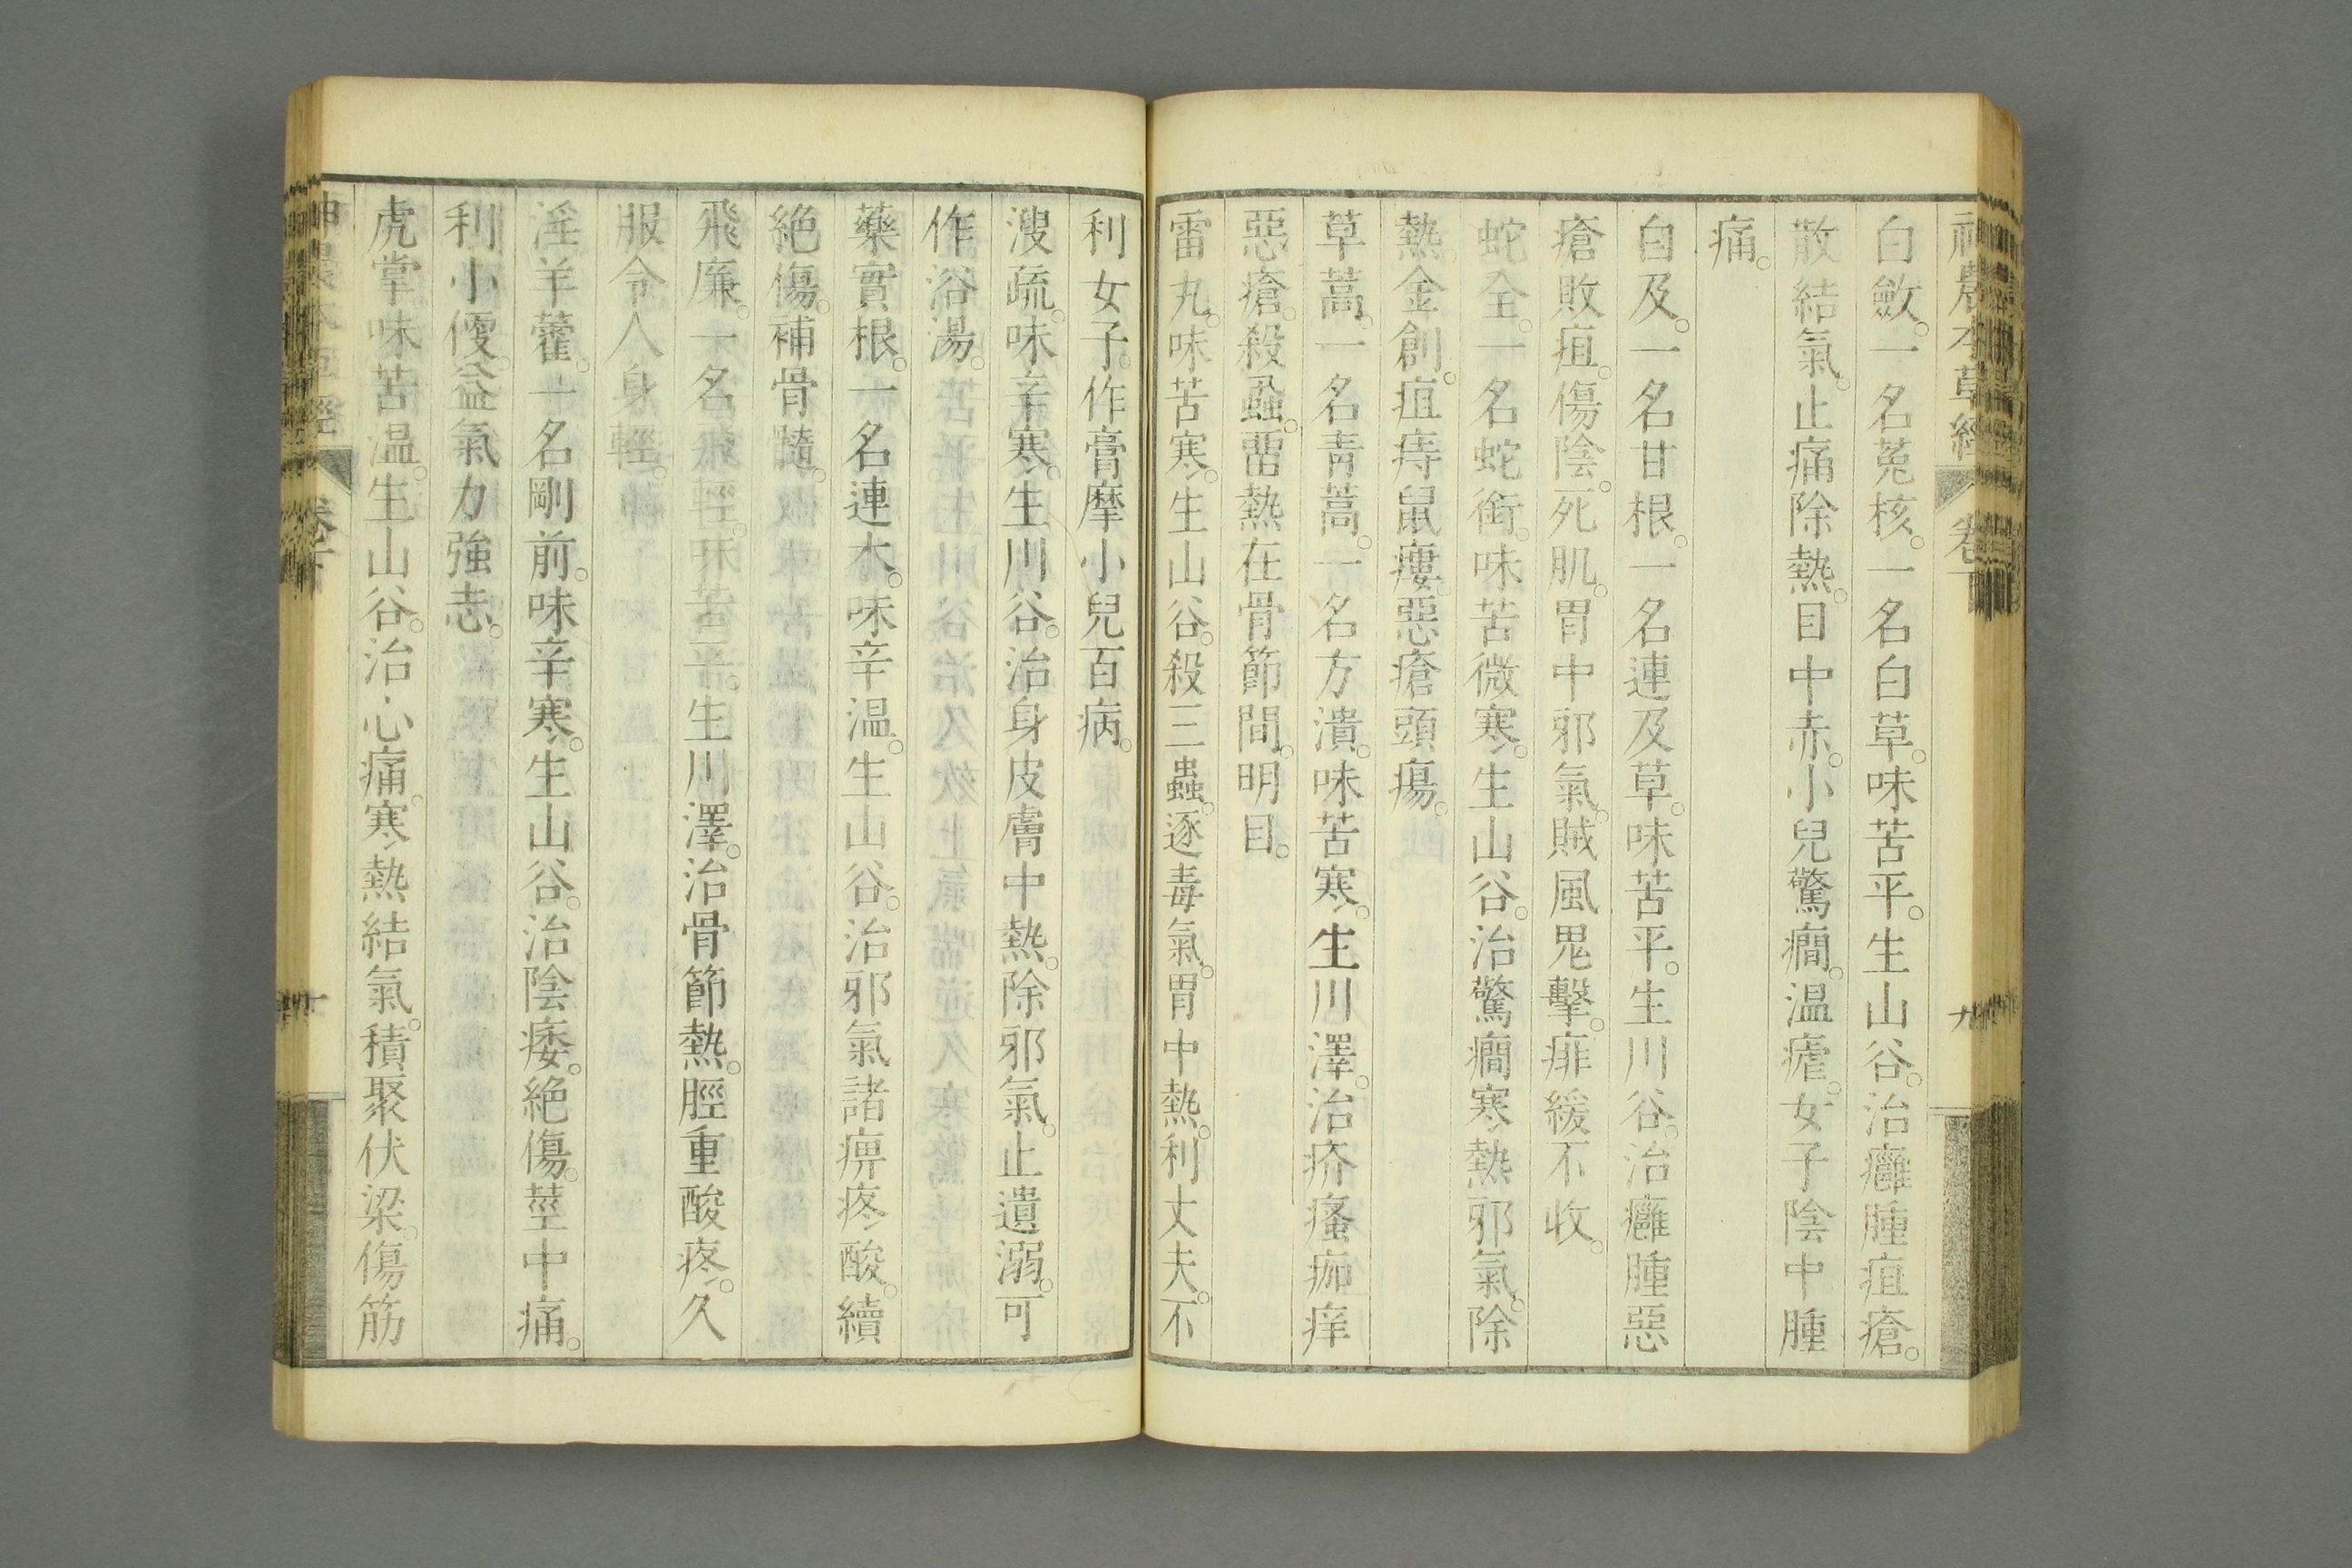 神農本草經 卷下 九
白斂。一名菟核。一名白草。味苦平。生山谷。治癰腫疽瘡。
散結氣。止痛除熱。目中赤。小兒驚癇。温瘧。女子陰中腫
痛。
白及。一名甘根。一名連及草。味苦平。生川谷。治癰腫惡
瘡敗疽。傷陰。死肌。胃中邪氣。賊風鬼擊。痱緩不收。
蛇全。一名蛇銜。味苦微寒。生山谷。治驚癇寒熱邪氣。除
熱金創。疽痔鼠瘻。惡瘡頭瘍。
草蒿。一名青蒿。一名方潰。味苦寒。生川澤。治疥瘙痂痒
惡瘡。殺蝨。畱熱在骨節間。明目。
雷丸。味苦寒。生山谷。殺三蟲。逐毒氣。胃中熱。利丈夫。不
利女子。作膏摩小兒百病。
溲疏。味辛寒。生川谷。治身皮膚中熱。除邪氣。止遺溺。可
作浴湯。
藥實根。一名連木。味辛温。生山谷。治邪氣諸痹疼酸。續
絕傷。補骨髓。
飛廉。一名飛輕。味苦平。生川澤。治骨節熱。脛重酸疼。久
服令人身輕。
淫羊藿。一名剛前。味辛寒。生山谷。治陰痿。絕傷。莖中痛。
利小便。益氣力強志。
虎掌。味苦温。生山谷。治心痛。寒熱結氣。積聚伏梁。傷筋
卷下